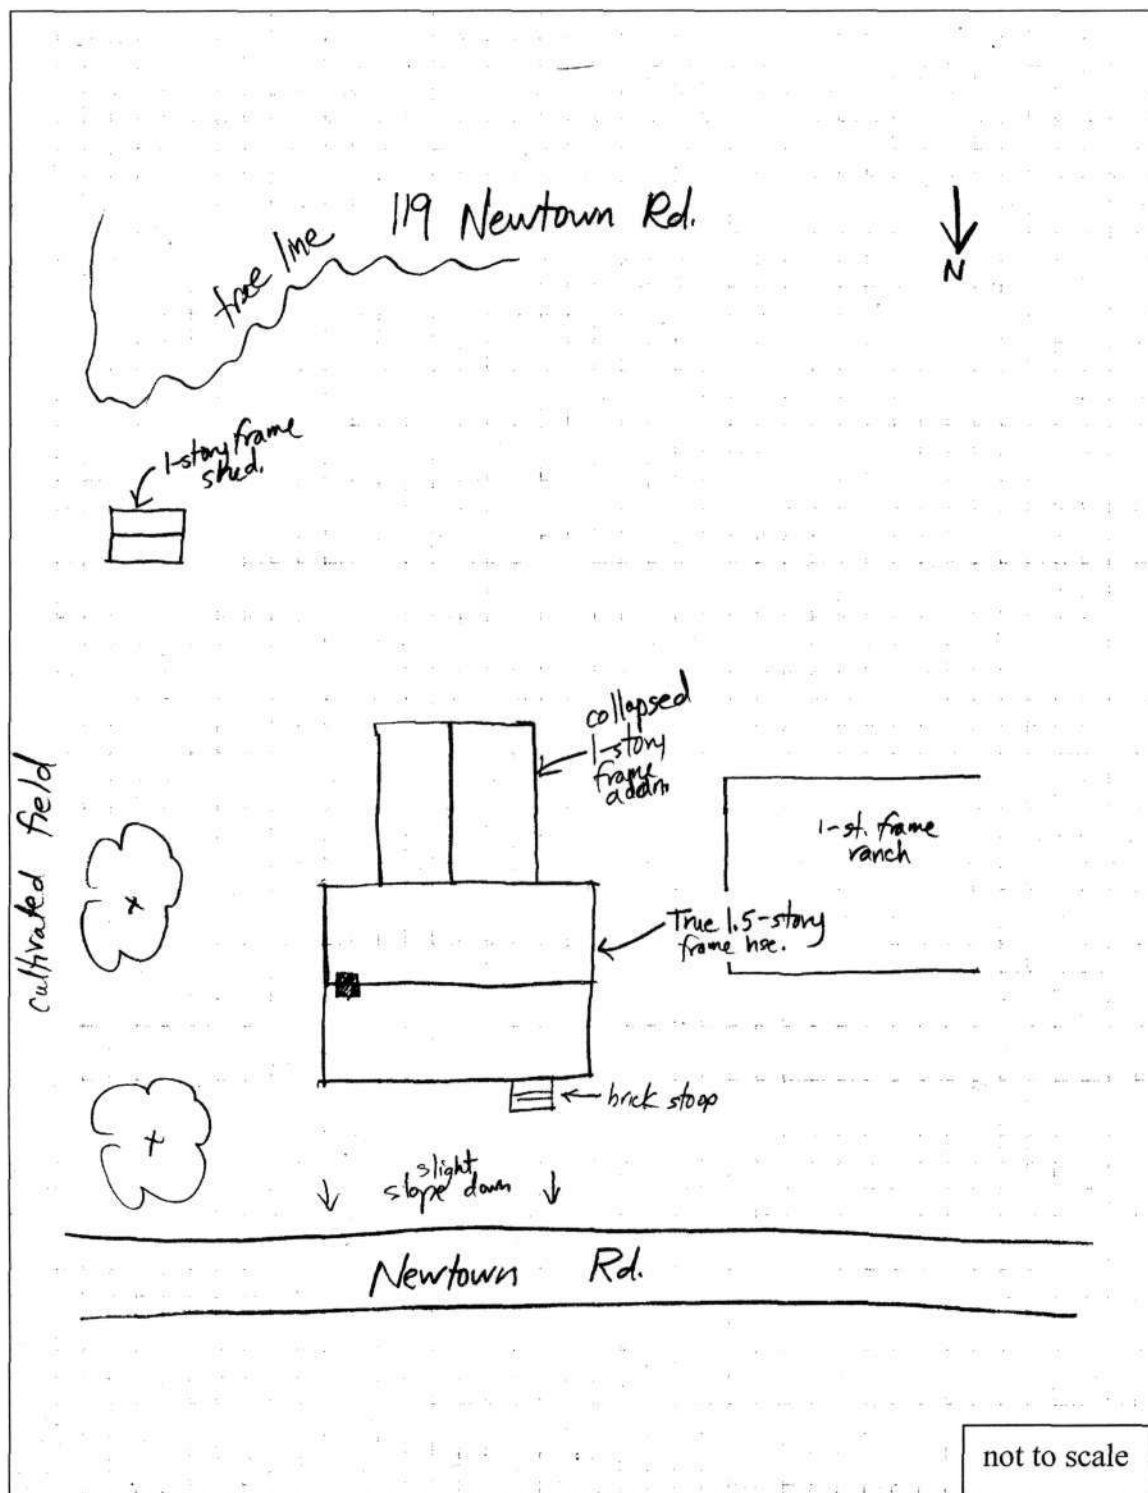 119 Newtown Rd.
tree line
N
1-story frame
shed.
collapsed
1-story
frame
addn.
cultivated field
1-st. frame
ranch
True 1.5-story
frame hse.
brick stoop
slight
slope down
Newtown Rd.
not to scale